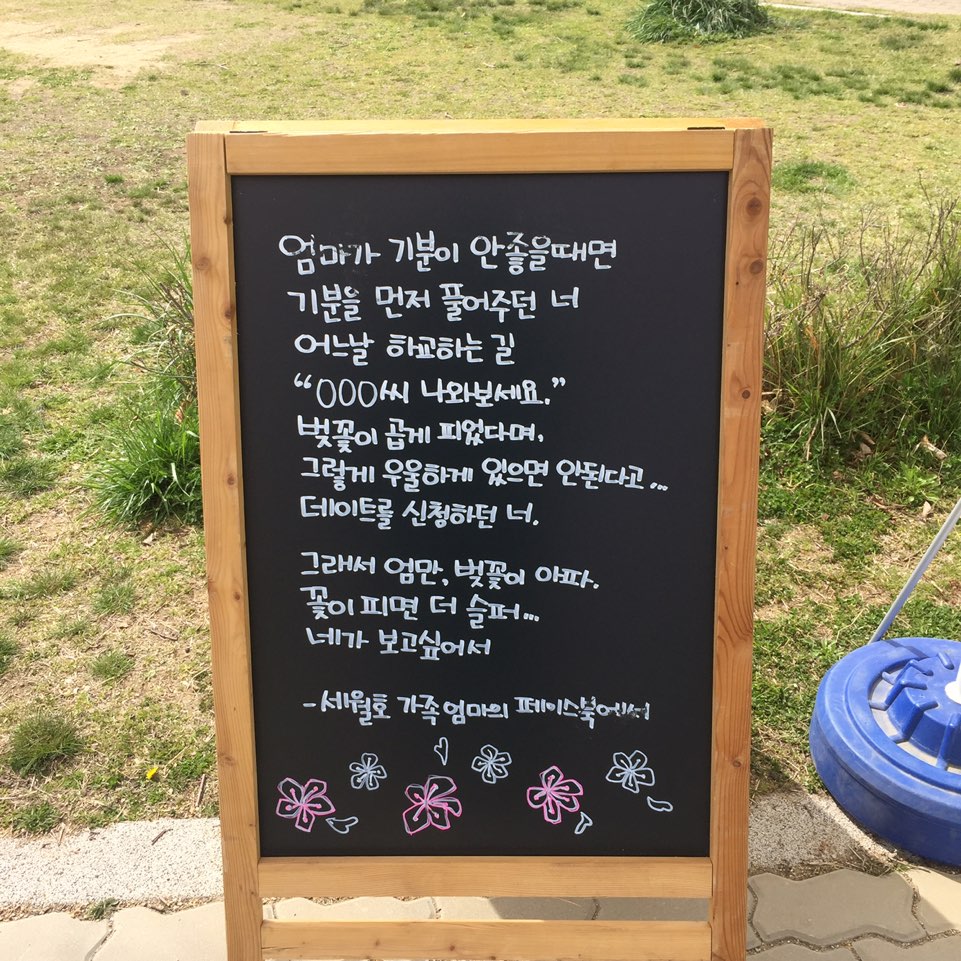 엄마가 기분이 안좋을때면
기분을 먼저 풀어주던 너
어느날 하교하는 길
“OOO씨 나와보세요.”
벚꽃이 곱게 피었다며,
그렇게 우울하게 있으면 안된다고...
데이트를 신청하던 너.
그래서 엄만, 벚꽃이 아파.
꽃이 피면 더 슬퍼...
네가 보고싶어서
-세월호 가족 엄마의 페이스북에서